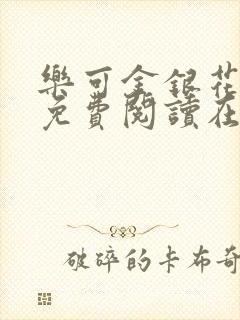 樂可金銀花
免費閱讀在
破碎的卡布奇